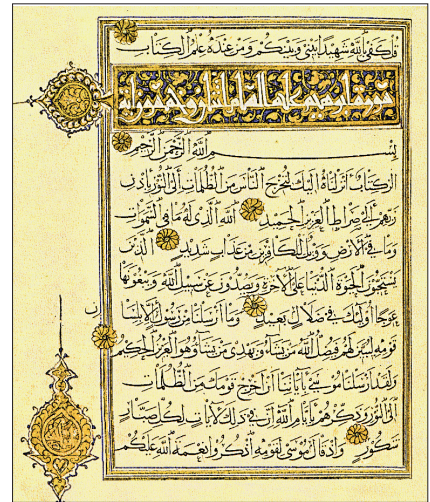 قل كفى بالله شهيدا بيني وبينكم ومن عنده علم الكتاب
سورة ابراهيم عليه السلام
بسم الله الرحمن الرحيم
الر كتاب انزلناه اليك لتخرج الناس من الظلمات الى النور باذن
ربهم الى صراط العزيز الحميد الله الذي له ما في السموات
وما في الارض وويل للكافرين من عذاب شديد الذين
يستحبون الحيوة الدنيا على الآخرة ويصدون عن سبيل الله ويبغونها
عوجا اولئك في ضلال بعيد وما ارسلنا من رسول الا بلسان
قومه ليبين لهم فيضل الله من يشاء ويهدي من يشاء وهو العزيز الحكيم
ولقد ارسلنا موسى بآياتنا ان اخرج قومك من الظلمات
الى النور وذكرهم بايام الله ان في ذلك لآيات لكل صبار
شكور واذ قال موسى لقومه اذكروا نعمة الله عليكم